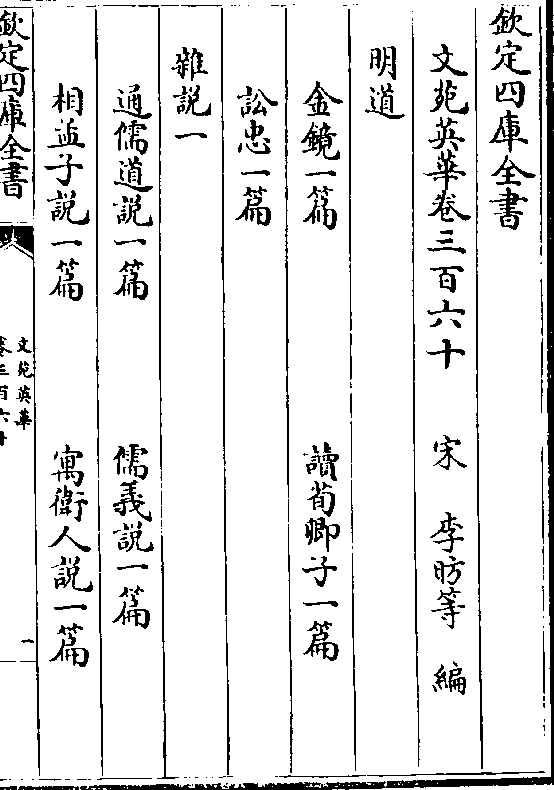 欽定四庫全書
文苑英華卷三百六十　宋　李昉等　編
明道
金鏡一篇　讀荀卿子一篇
訟忠一篇
雜説一
通儒道説一篇　儒義説一篇
相孟子説一篇　寓衛人説一篇
欽定四庫全書
文苑英華
卷三百六十
一